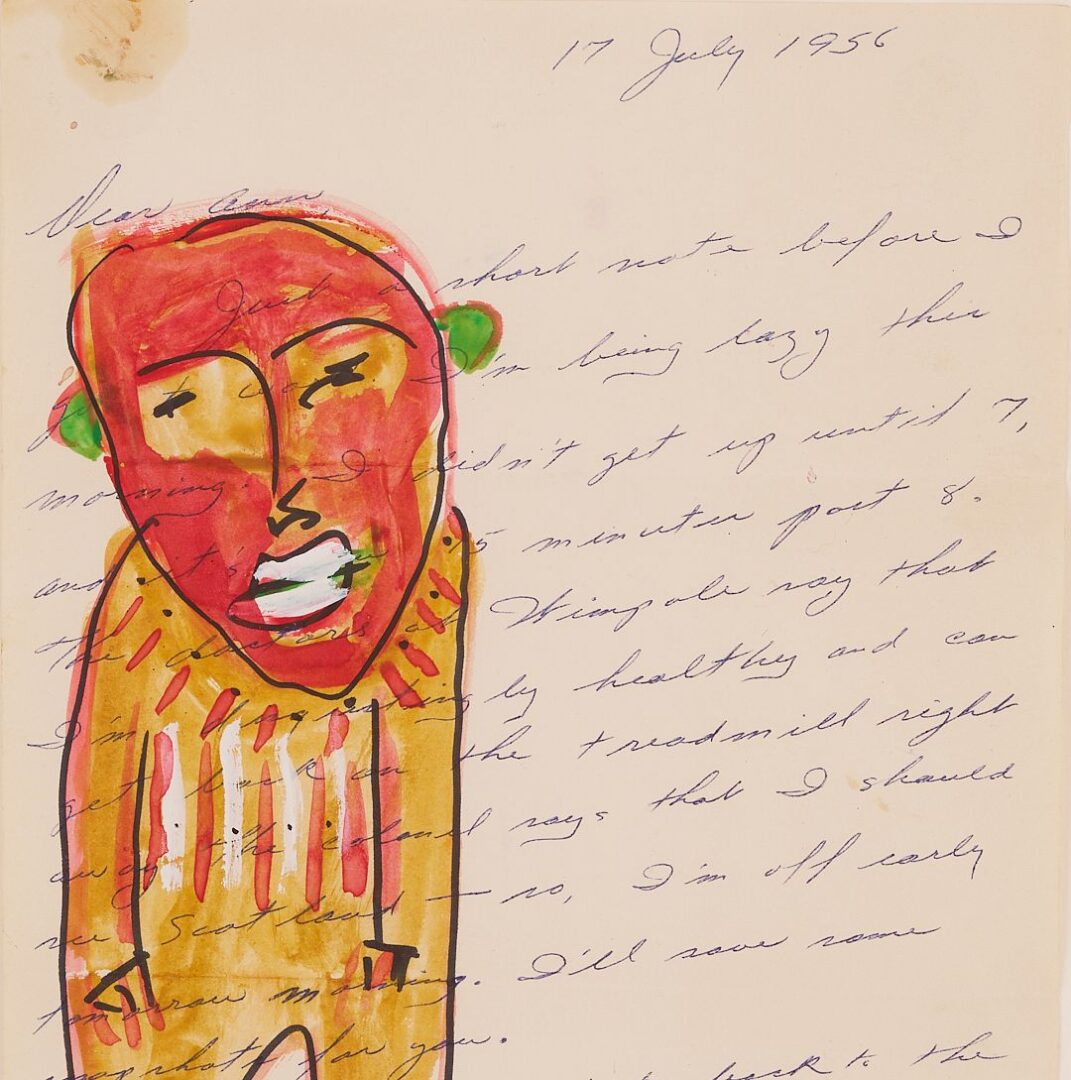 17 July 1956
Dear Ann,
Just a short note before I
go to work. I'm being lazy this
morning. I didn't get up until 7,
and it's now 15 minutes past 8.
The doctors at Wimpole say that
I'm disgustingly healthy and can
get back on the treadmill right
away. The colonel says that I should
see Scotland — so, I'm off early
tomorrow morning. I'll save some
snapshots for you.
back to the